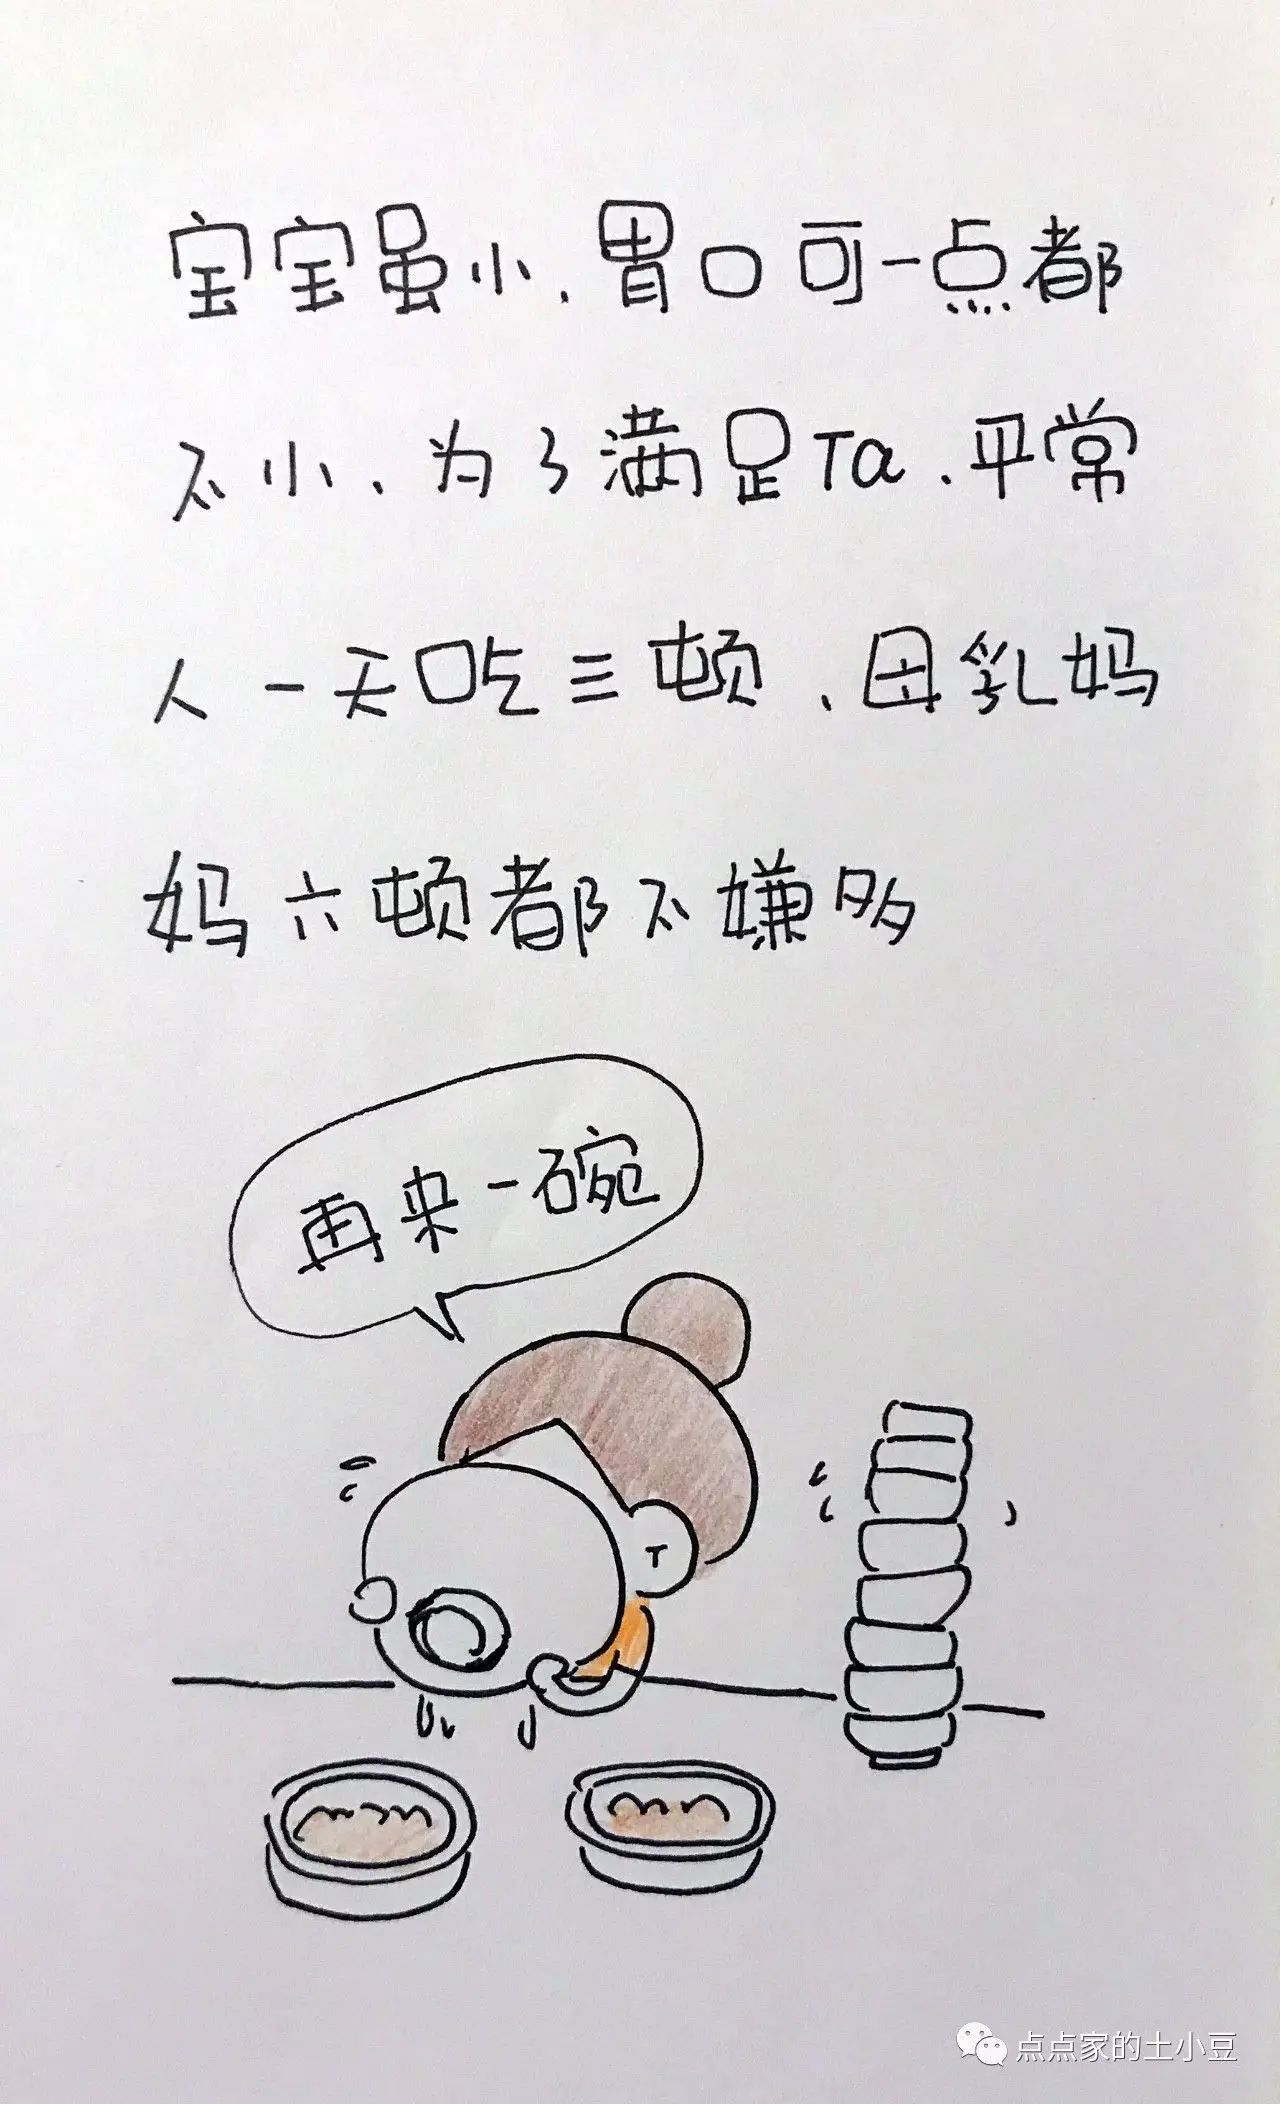 宝宝虽小、胃口可一点都
不小、为了满足Ta、平常
人一天吃三顿、母乳妈
妈六顿都不嫌多
再来一碗
点点家的土小豆